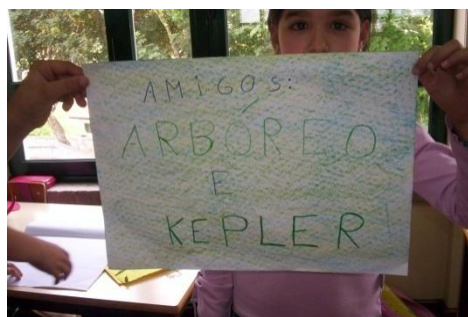 AMIGOS:
ARBÓREO
E
KEPLER